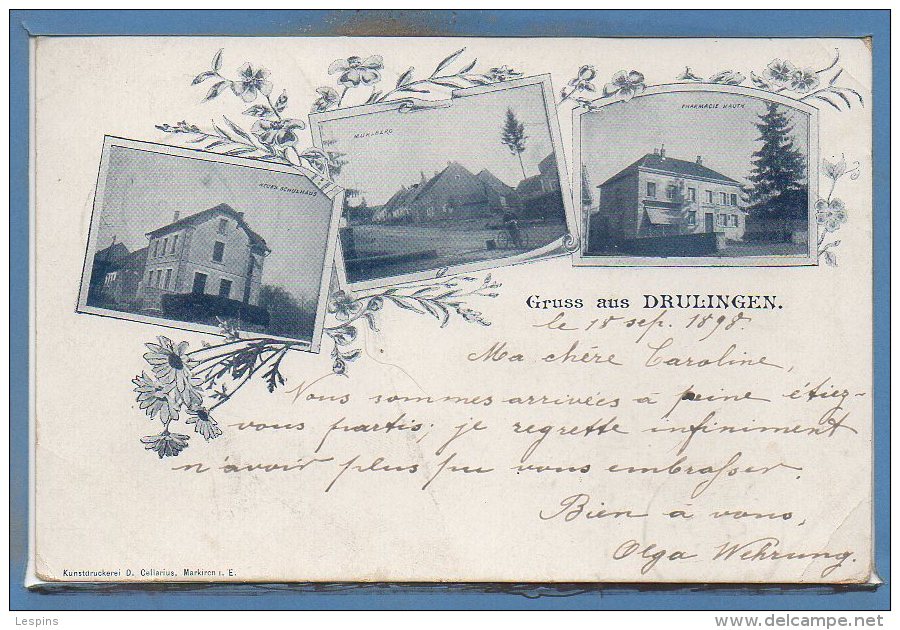 NEUES SCHULHAUS
MUHLBERG
PHARMACIE KAUTH
Gruss aus DRULINGEN.
le 18 sep. 1898.
Ma chère Caroline,
Nous sommes arrivées à peine étiez-
vous partis; je regrette infiniment
n'avoir plus pu vous embrasser.
Bien à vous,
Olga Wehrung.
Kunstdruckerei D. Cellarius, Markirch i. E.
Lespins
www.delcampe.net